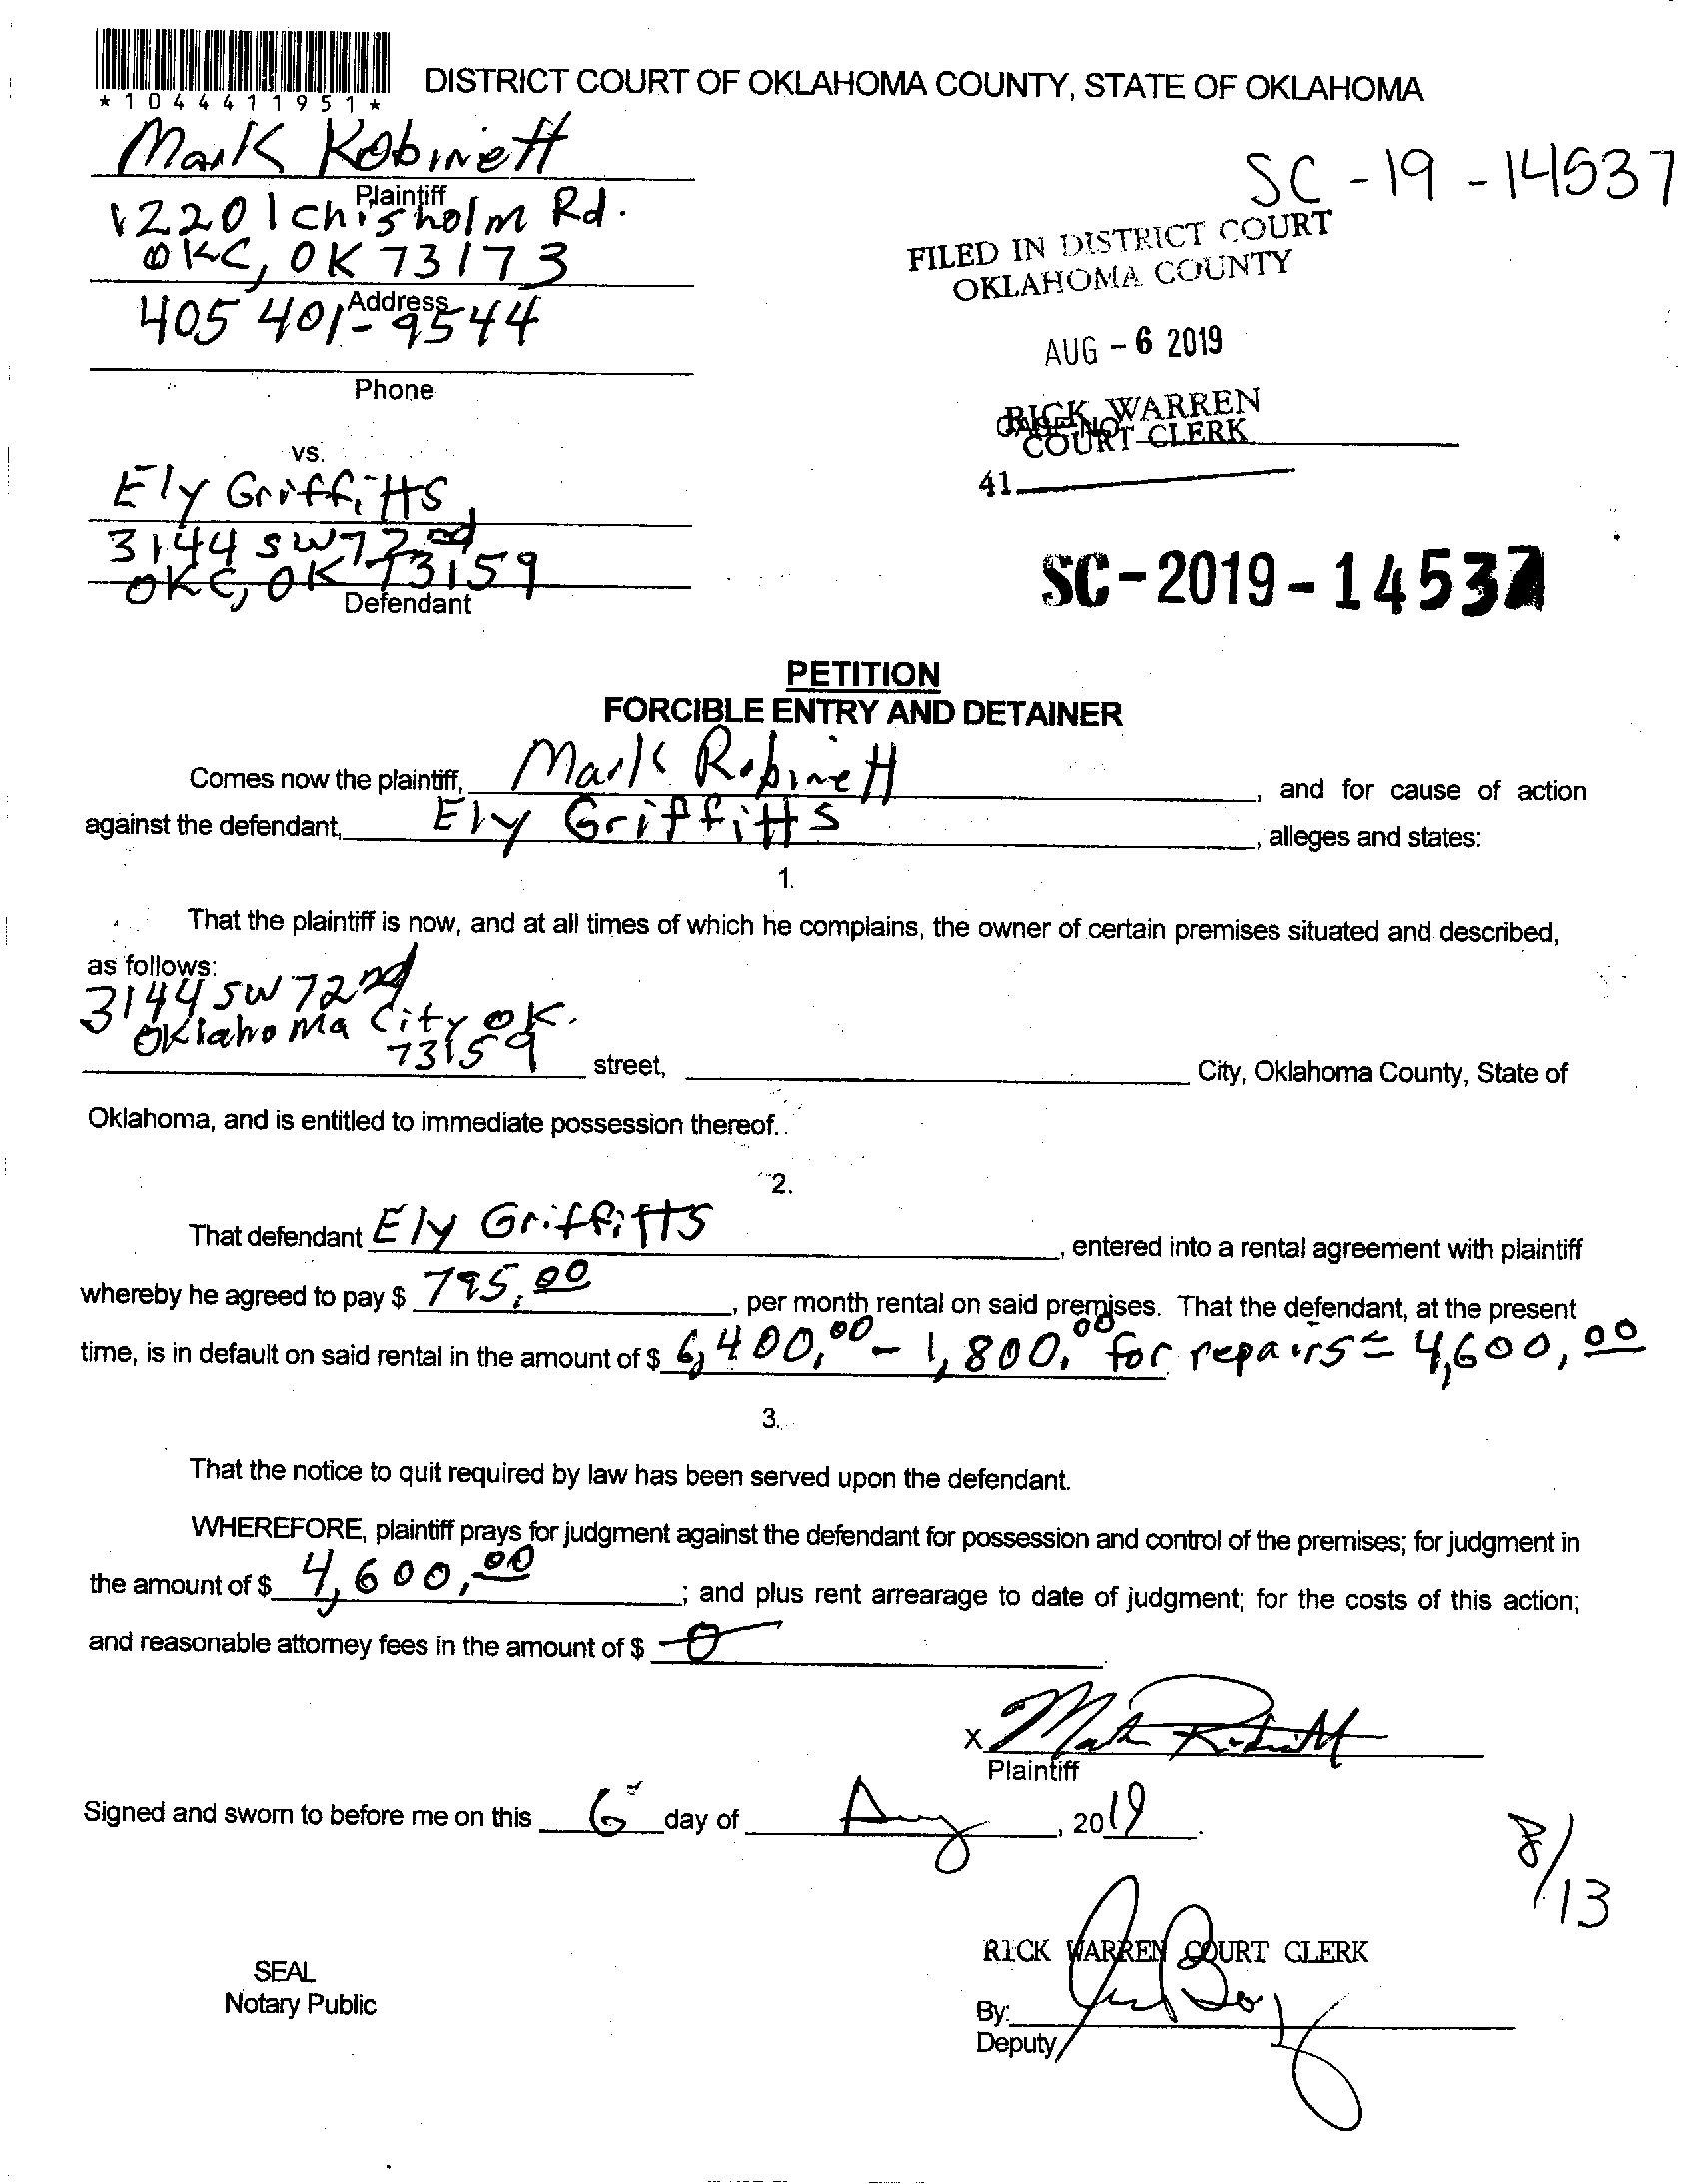 *1044411951*
DISTRICT COURT OF OKLAHOMA COUNTY, STATE OF OKLAHOMA
Mark Robinett
Plaintiff
12201 Chisholm Rd.
OKC, OK 73173
Address
405 401-9544
Phone
SC-19-14537
FILED IN DISTRICT COURT
OKLAHOMA COUNTY
AUG - 6 2019
RICK WARREN
COURT CLERK
CASE NO.
41
vs.
Ely Griffitts
3144 SW 72nd
OKC, OK 73159
Defendant
SC-2019-14537
PETITION
FORCIBLE ENTRY AND DETAINER
Comes now the plaintiff, Mark Robinett, and for cause of action
against the defendant, Ely Griffitts, alleges and states:
1.
That the plaintiff is now, and at all times of which he complains, the owner of certain premises situated and described,
as follows:
3144 SW 72nd
Oklahoma City OK.
73159 street, City, Oklahoma County, State of
Oklahoma, and is entitled to immediate possession thereof.
2.
That defendant Ely Griffitts, entered into a rental agreement with plaintiff
whereby he agreed to pay $ 795.00, per month rental on said premises. That the defendant, at the present
time, is in default on said rental in the amount of $ 6,400.00 - 1,800.00 for repairs = 4,600.00
3.
That the notice to quit required by law has been served upon the defendant.
WHEREFORE, plaintiff prays for judgment against the defendant for possession and control of the premises; for judgment in
the amount of $ 4,600.00; and plus rent arrearage to date of judgment; for the costs of this action;
and reasonable attorney fees in the amount of $ 0.
X Mark Robinett
Plaintiff
Signed and sworn to before me on this 6 day of Aug, 2019.
8/13
RICK WARREN COURT CLERK
SEAL
Notary Public
By:
Deputy